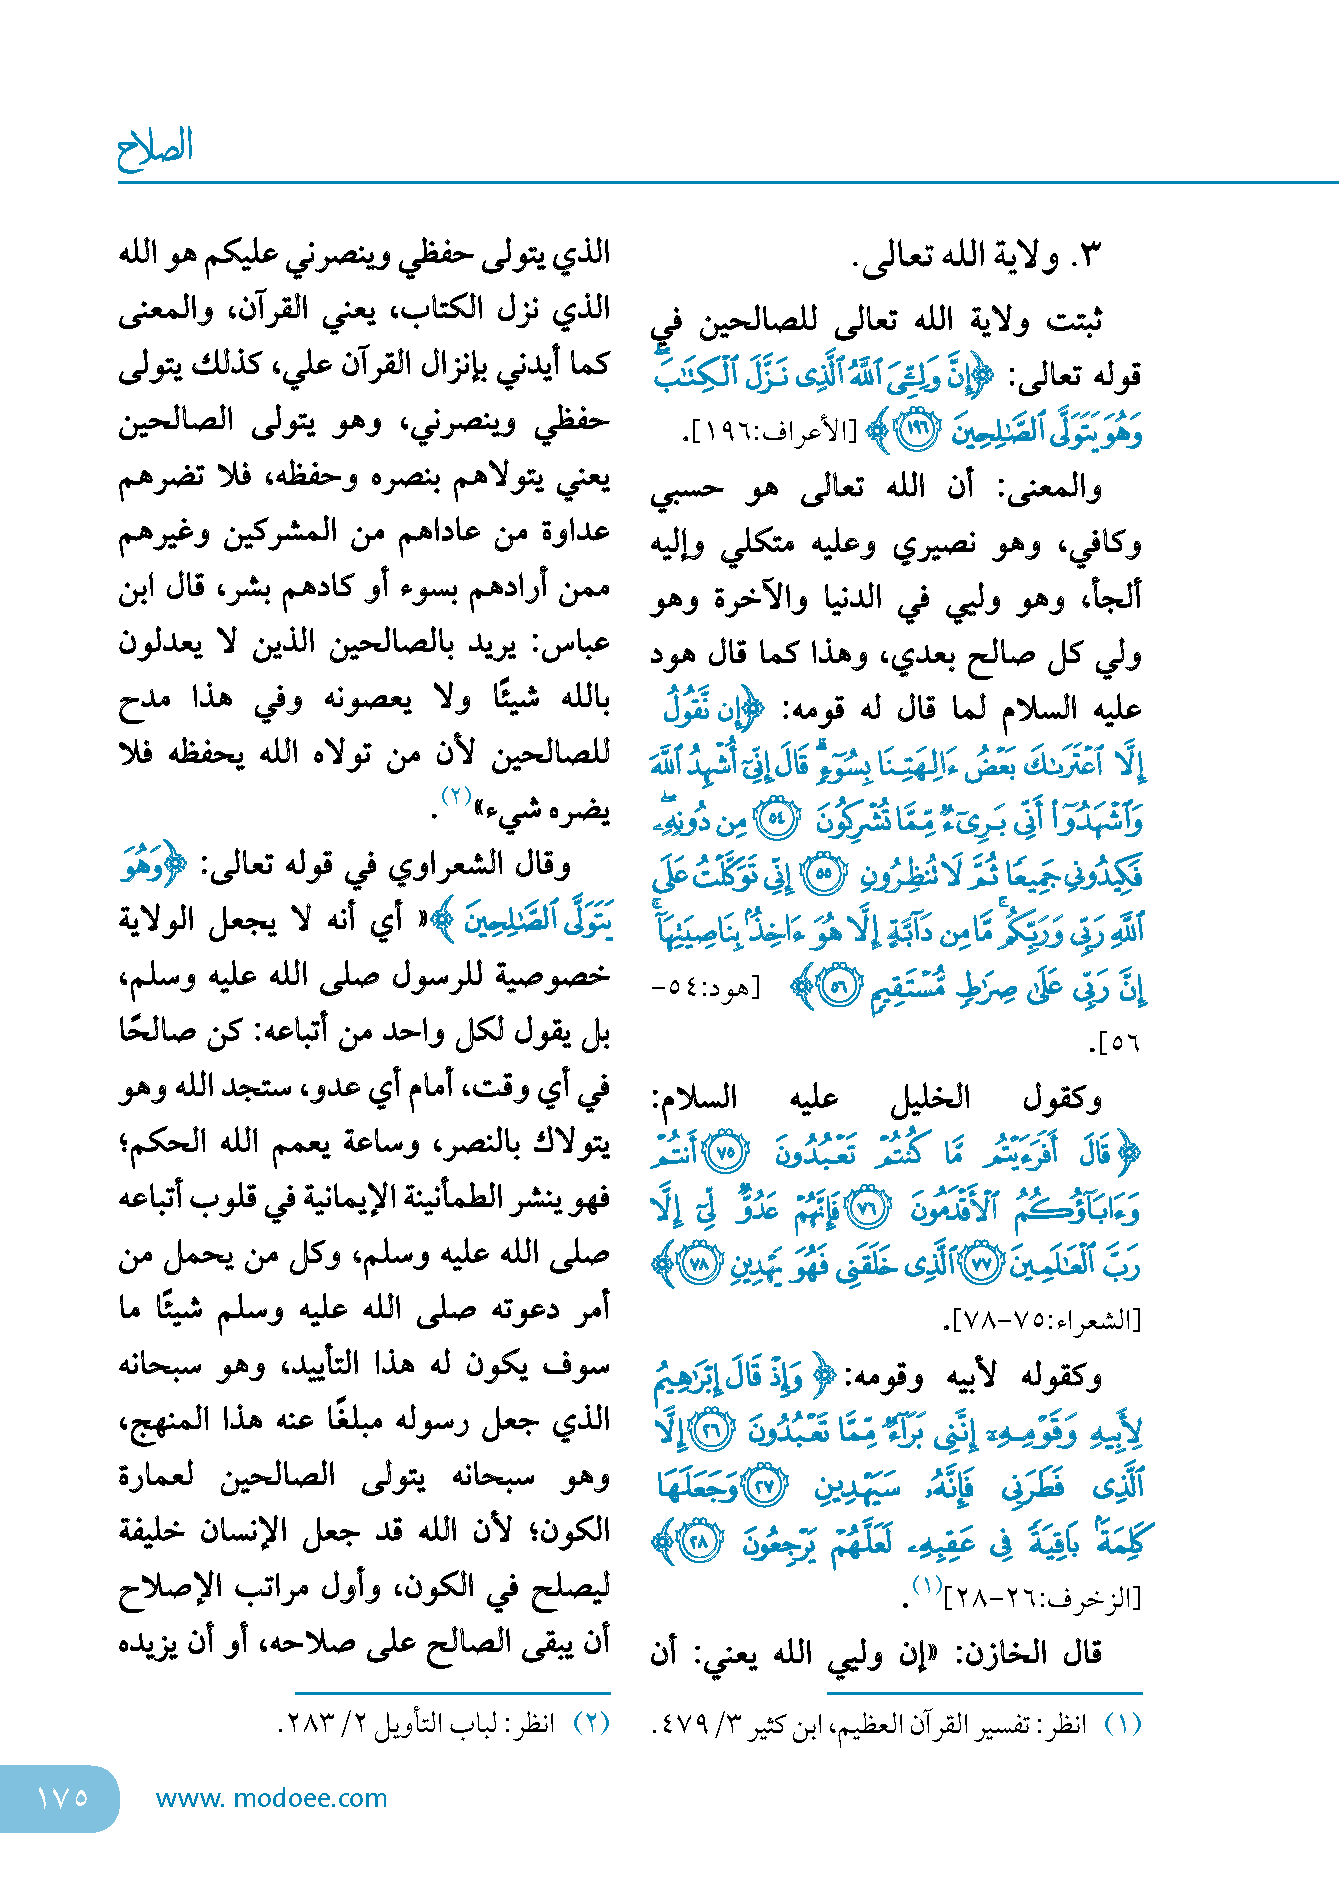 الصلاح
٣. ولاية الله تعالى.
ثبتت ولاية الله تعالى للصالحين في
قوله تعالى: ﴿إِنَّ وَلِـِّۧيَ ٱللَّهُ ٱلَّذِى نَزَّلَ ٱلْكِتَـٰبَ ۖ
وَهُوَ يَتَوَلَّى ٱلصَّـٰلِحِينَ ۝١٩٦﴾ [الأعراف:١٩٦].
والمعنى: أن الله تعالى هو حسبي
وكافي، وهو نصيري وعليه متكلي وإليه
ألجأ، وهو وليي في الدنيا والآخرة وهو
ولي كل صالح بعدي، وهذا كما قال هود
عليه السلام لما قال له قومه: ﴿إِن نَّقُولُ
إِلَّا ٱعْتَرَىٰكَ بَعْضُ ءَالِهَتِنَا بِسُوٓءٍ ۗ قَالَ إِنِّىٓ أُشْهِدُ ٱللَّهَ
وَٱشْهَدُوٓا۟ أَنِّى بَرِىٓءٌ مِّمَّا تُشْرِكُونَ ۝٥٤ مِن دُونِهِۦ ۖ
فَكِيدُونِى جَمِيعًا ثُمَّ لَا تُنظِرُونِ ۝٥٥ إِنِّى تَوَكَّلْتُ عَلَى
ٱللَّهِ رَبِّى وَرَبِّكُم ۚ مَّا مِن دَآبَّةٍ إِلَّا هُوَ ءَاخِذٌۢ بِنَاصِيَتِهَآ ۚ
إِنَّ رَبِّى عَلَىٰ صِرَٰطٍ مُّسْتَقِيمٍ ۝٥٦﴾ [هود:٥٤-
٥٦].
وكقول الخليل عليه السلام:
﴿قَالَ أَفَرَءَيْتُم مَّا كُنتُمْ تَعْبُدُونَ ۝٧٥ أَنتُمْ
وَءَابَآؤُكُمُ ٱلْأَقْدَمُونَ ۝٧٦ فَإِنَّهُمْ عَدُوٌّ لِّىٓ إِلَّا
رَبَّ ٱلْعَـٰلَمِينَ ۝٧٧ ٱلَّذِى خَلَقَنِى فَهُوَ يَهْدِينِ ۝٧٨﴾
[الشعراء:٧٥-٧٨].
وكقوله لأبيه وقومه: ﴿وَإِذْ قَالَ إِبْرَٰهِيمُ
لِأَبِيهِ وَقَوْمِهِۦٓ إِنَّنِى بَرَآءٌ مِّمَّا تَعْبُدُونَ ۝٢٦ إِلَّا
ٱلَّذِى فَطَرَنِى فَإِنَّهُۥ سَيَهْدِينِ ۝٢٧ وَجَعَلَهَا
كَلِمَةًۢ بَاقِيَةً فِى عَقِبِهِۦ لَعَلَّهُمْ يَرْجِعُونَ ۝٢٨﴾
[الزخرف:٢٦-٢٨](١).
قال الخازن: «إن وليي الله يعني: أن
الذي يتولى حفظي وينصرني عليكم هو الله
الذي نزل الكتاب، يعني القرآن، والمعنى
كما أيدني بإنزال القرآن علي، كذلك يتولى
حفظي وينصرني، وهو يتولى الصالحين
يعني يتولاهم بنصره وحفظه، فلا تضرهم
عداوة من عاداهم من المشركين وغيرهم
ممن أرادهم بسوء أو كادهم بشر، قال ابن
عباس: يريد بالصالحين الذين لا يعدلون
بالله شيئًا ولا يعصونه وفي هذا مدح
للصالحين لأن من تولاه الله يحفظه فلا
يضره شيء»(٢).
وقال الشعراوي في قوله تعالى: ﴿وَهُوَ
يَتَوَلَّى ٱلصَّـٰلِحِينَ﴾ «أي أنه لا يجعل الولاية
خصوصية للرسول صلى الله عليه وسلم،
بل يقول لكل واحد من أتباعه: كن صالحًا
في أي وقت، أمام أي عدو، ستجد الله وهو
يتولاك بالنصر، وساعة يعمم الله الحكم؛
فهو ينشر الطمأنينة الإيمانية في قلوب أتباعه
صلى الله عليه وسلم، وكل من يحمل من
أمر دعوته صلى الله عليه وسلم شيئًا ما
سوف يكون له هذا التأييد، وهو سبحانه
الذي جعل رسوله مبلغًا عنه هذا المنهج،
وهو سبحانه يتولى الصالحين لعمارة
الكون؛ لأن الله قد جعل الإنسان خليفة
ليصلح في الكون، وأول مراتب الإصلاح
أن يبقى الصالح على صلاحه، أو أن يزيده
(١) انظر: تفسير القرآن العظيم، ابن كثير ٣/ ٤٧٩.
(٢) انظر: لباب التأويل ٢/ ٢٨٣.
www. modoee.com
١٧٥